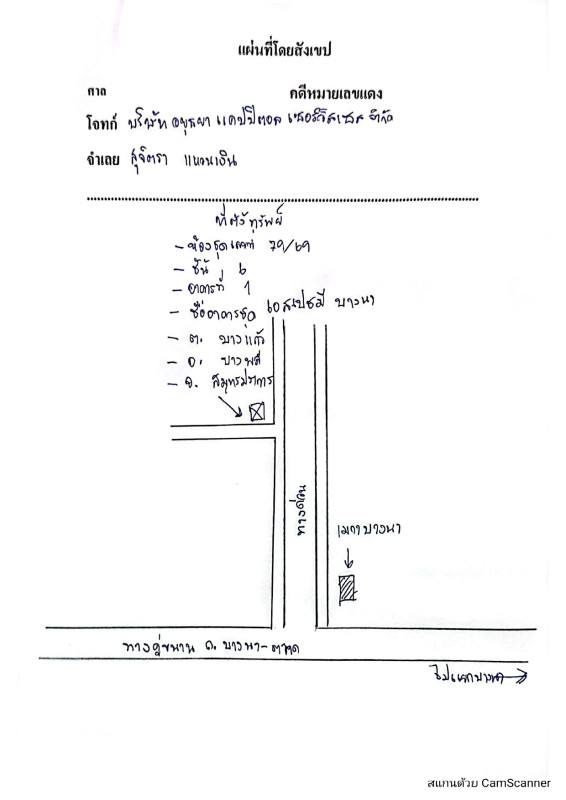 แผ่นที่โดยสังเขป
ศาล คดีหมายเลขแดง
โจทก์ บริษัท อยุธยา แคปปิตอล เซอร์วิสเซส จำกัด
จำเลย สุจิตรา แหวนเงิน
ที่ตั้งทรัพย์
- ห้องชุดเลขที่ 79/69
- ชั้น 6
- อาคารที่ 1
- ชื่ออาคารชุด เอสเปซมี บางนา
- ต. บางแก้ว
- อ. บางพลี
- จ. สมุทรปราการ
ทางด่วน
เมกาบางนา
ทางคู่ขนาน ถ. บางนา-ตราด
ไปแยกบางนา
สแกนด้วย CamScanner